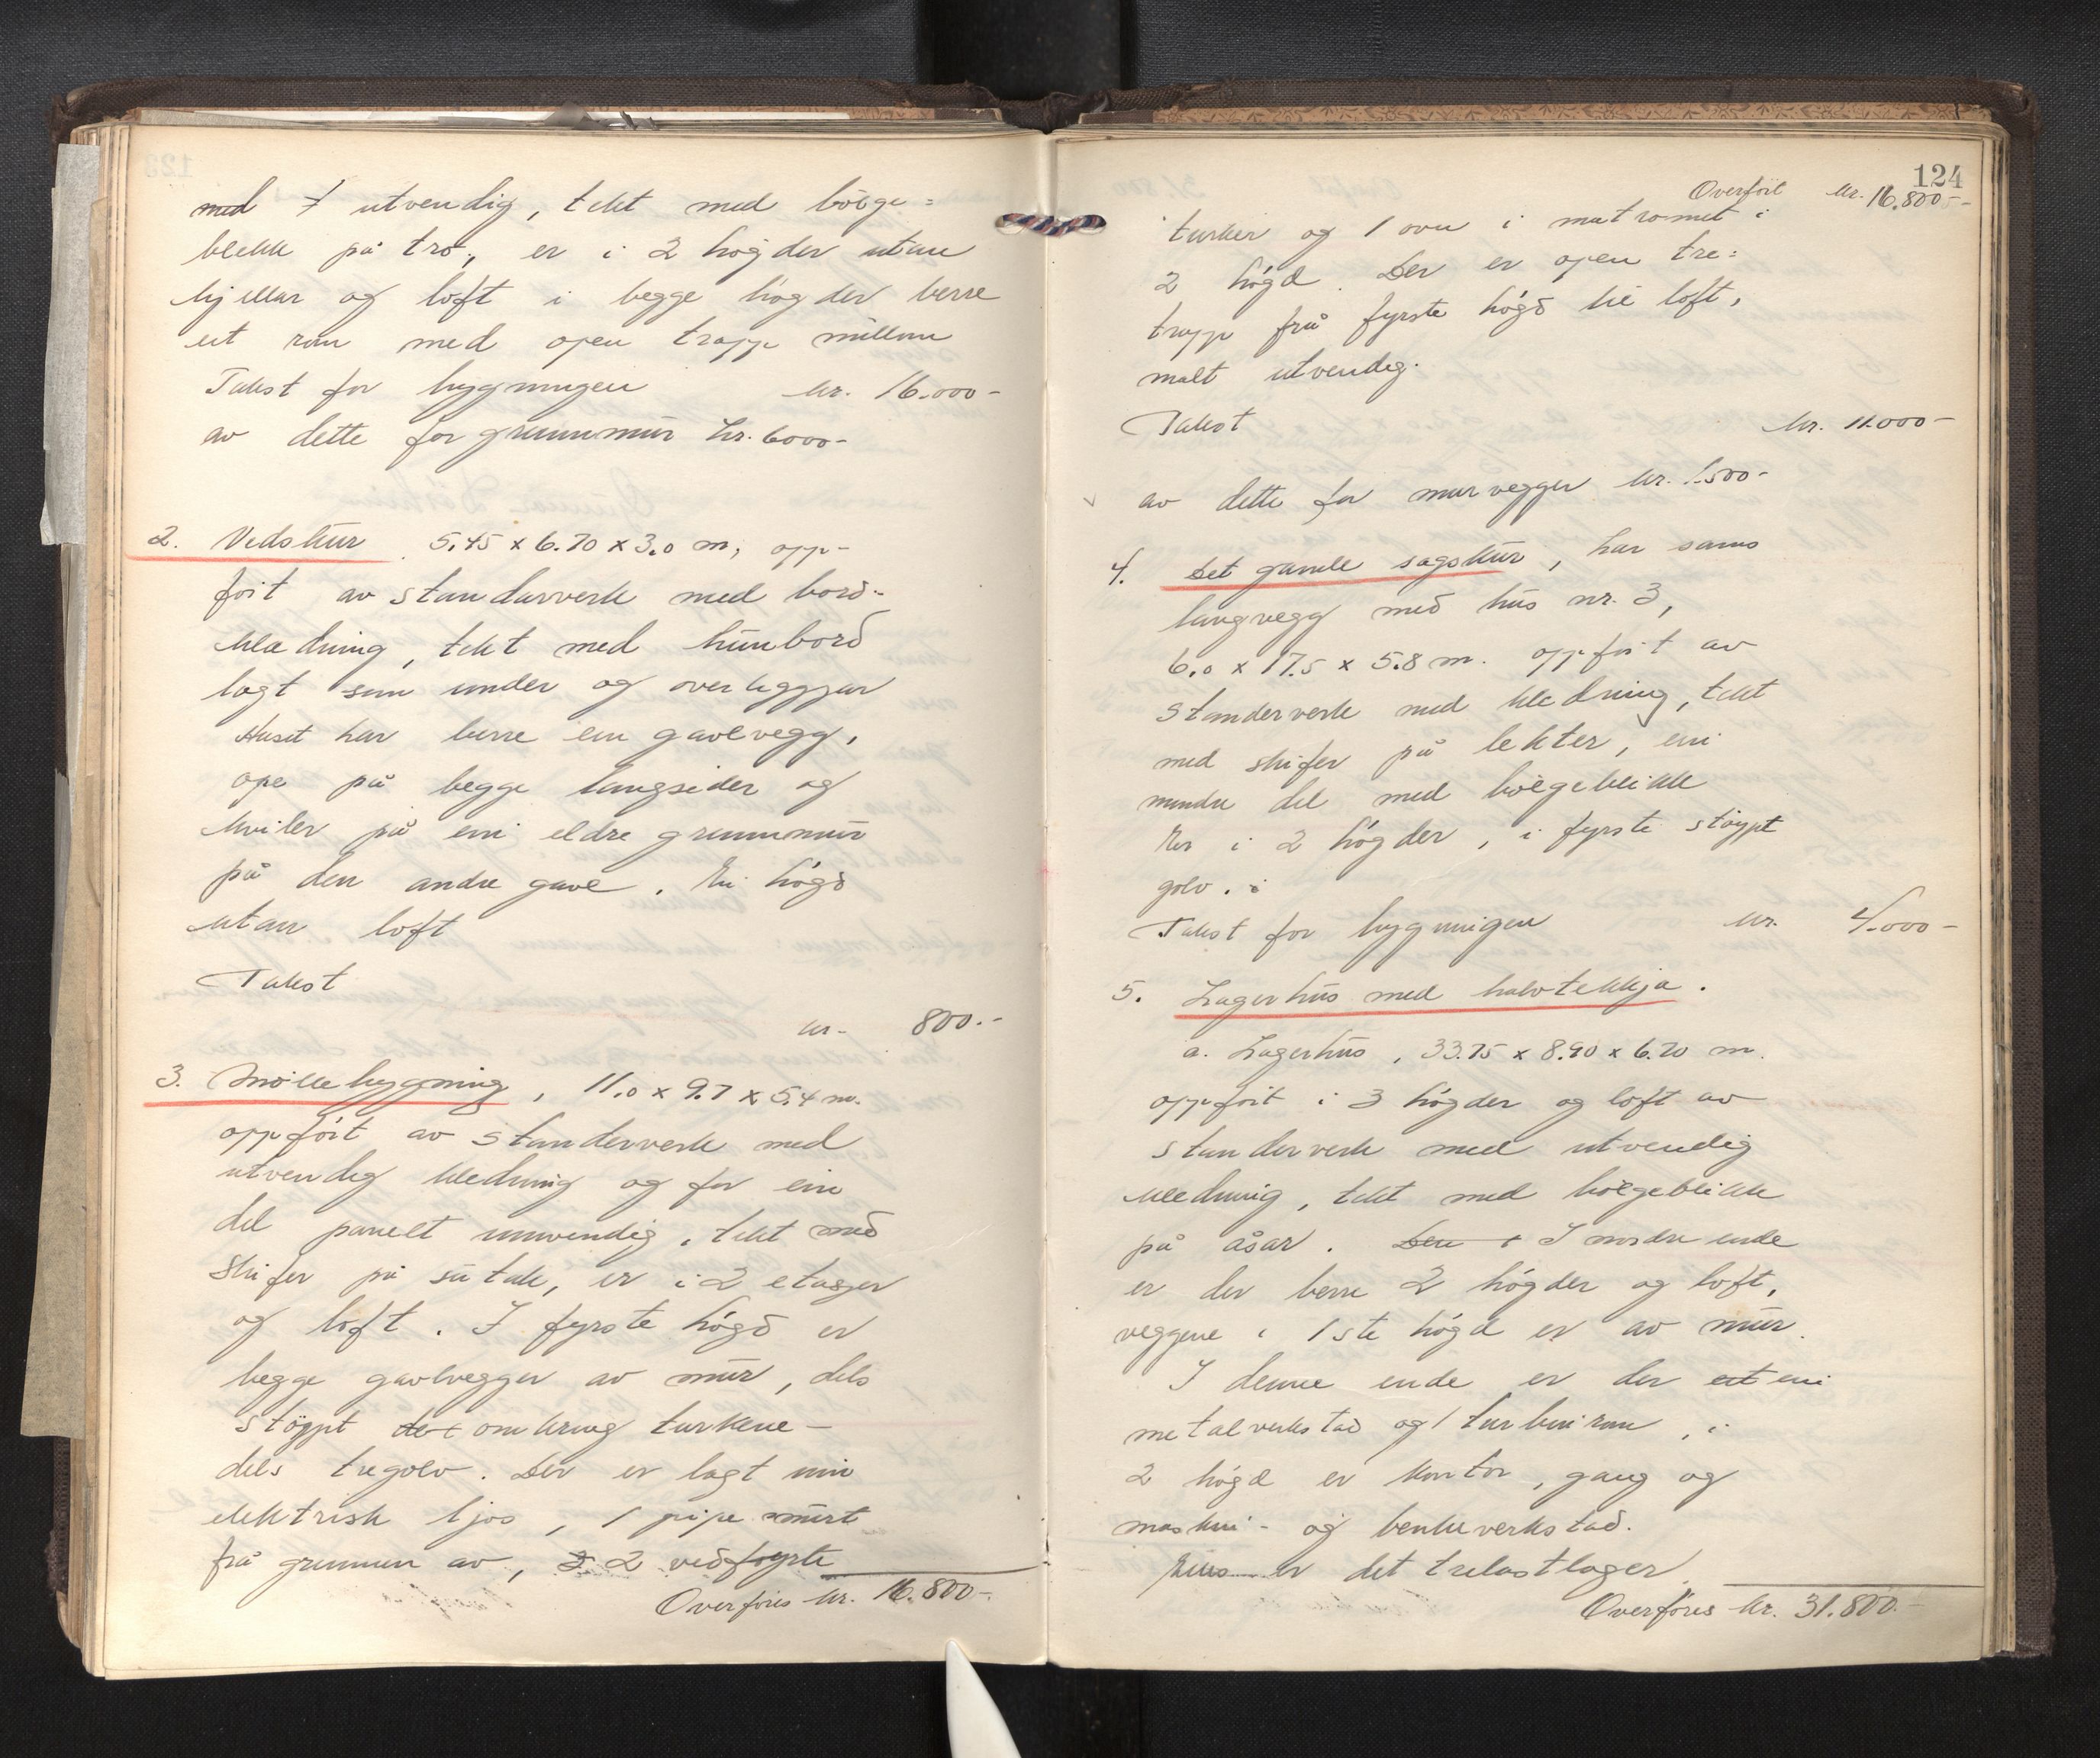 med 7 utvendig, tekt med bölge=
blekk på tro, er i 2 högder utan
kjellar og loft i begge högder berre
eit rom med open trapp millom
Takst for bygningen kr. 16.000-
av dette for grunnmur kr. 6000-
2. Vedskur 5.45 x 6.70 x 3.0 m, opp-
fört av standarverk med bord-
kledning, tekt med hunbord
lagt som under og overliggjar
Huset har berre ein gavlvegg,
ope på begge langsider og
kviler på ein eldre grunnmur
på den andre gavl. Ei högd
utan loft
Takst
kr. 800.-
3. Möllebygning, 11.0 x 9.7 x 5.4 m.
oppfört av standerverk med
utvendig kledning og for ein
del panelt innvendig, tekt med
skifer på sutak, er i 2 etasjer
og loft. I fyrste högd er
begge gavlvegger av mur, dels
stöypt det omkring turkene-
dels tregolv. Der er lagt inn
elektrisk ljos, 1 pipe murt
frå grunnen av, 3 2 vedfyrte
Overföres kr. 16.800-
124
Overfört kr. 16.800-
turker og 1 ovn i matromet i
2 högd. Der er open tre=
trapp frå fyrste högd til loft,
malt utvendig.
Takst kr. 11.000-
av dette for murvegger kr. 1.500-
4. Det gamle sagskur, har sams
langvegg med hus nr. 3,
6.0 x 17.5 x 5.8 m. oppfört av
standerverk med kledning, tekt
med skifer på lekter, ein
mindre del med bölgeblikk
Er i 2 högder, i fyrste stöypt
golv. i
Takst for bygningen kr. 4.000-
5. Lagerhus med halvtekkja.
a. Lagerhus, 33.75 x 8.90 x 6.70 m.
oppfört i 3 högder og loft av
standerverk med utvendig
kledning, tekt med bölgeblikk
på åsar. Den i I nordre ende
er der berre 2 högder og loft,
veggene i 1ste högd er av mur.
I denne ende er der eit ein
metalverkstad og 1 turbinrom, i
2 högd er kontor, gang og
maskin- og benkeverkstad.
Elles er det trelastlager.
Overföres kr. 31.800.-